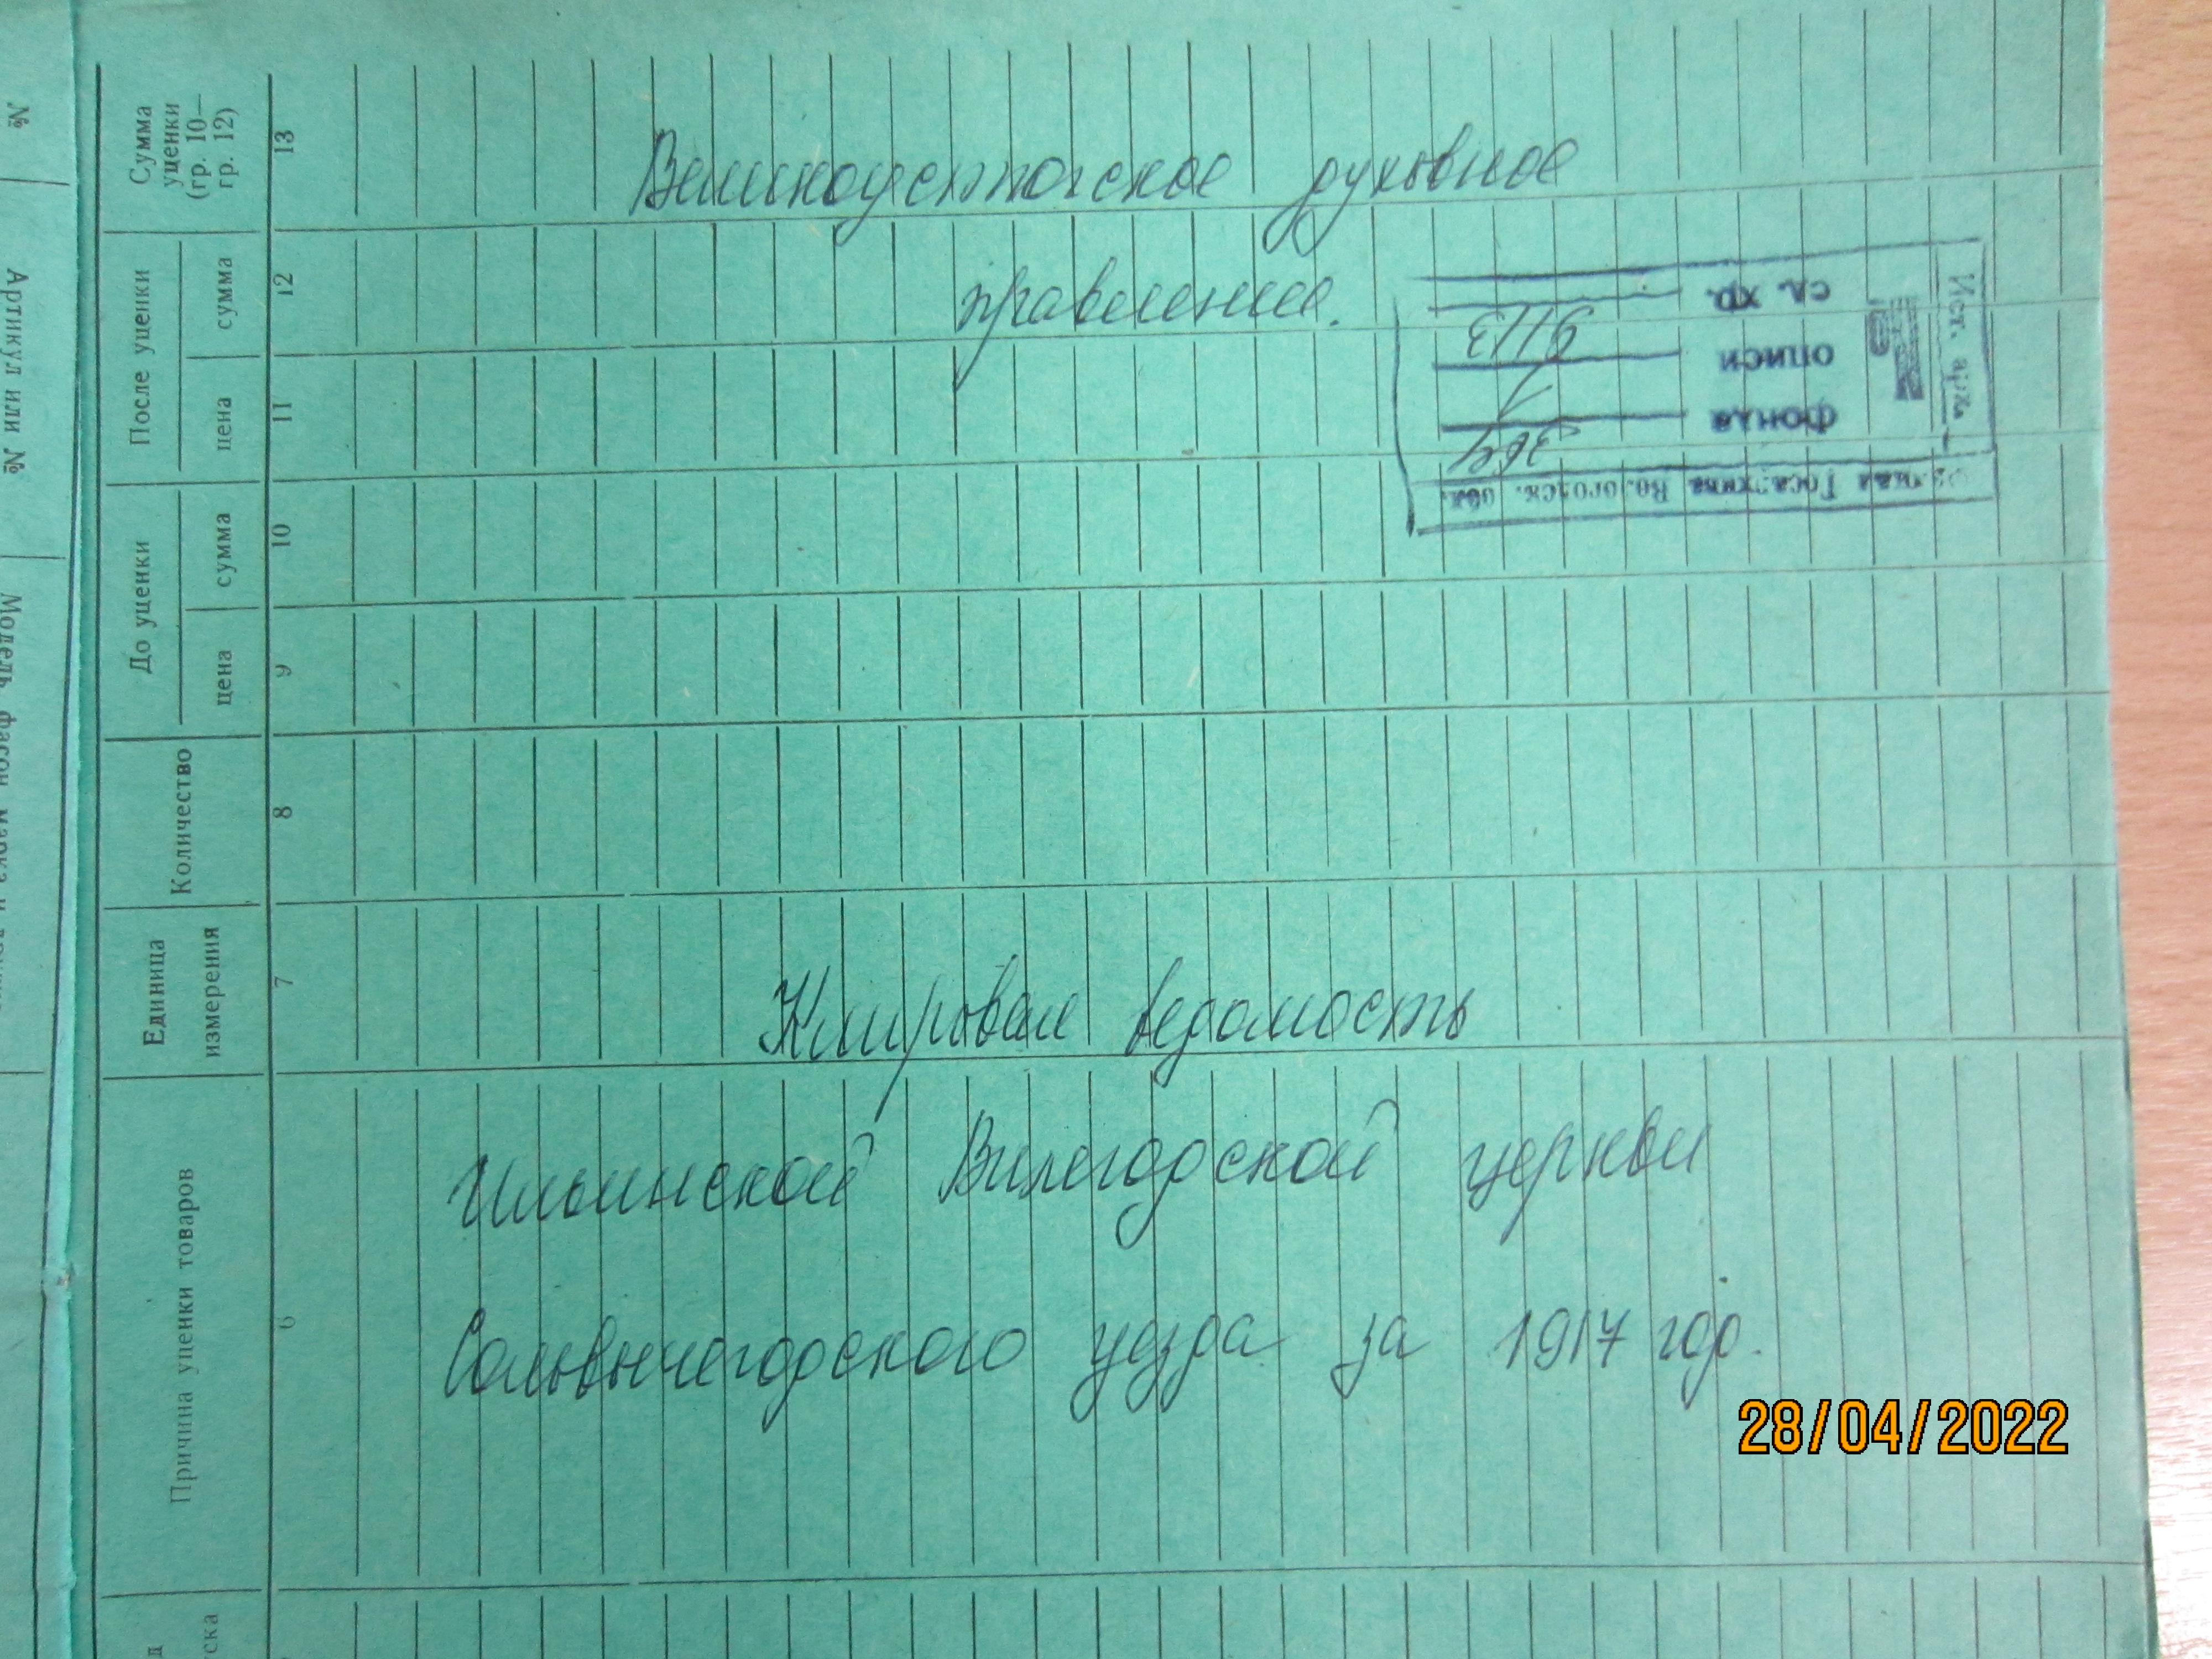 Великоустюгское духовное
правление.
Ист. арх.
ед. хр.
9113
описи
1
фонда
364
Госархива Вологодск. обл.
Клировая ведомость
Ильинской Вилегодской церкви
Сольвычегодского уезда за 1917 год.
28/04/2022
Сумма
уценки
(гр. 10—
гр. 12)
13
После уценки
сумма
12
цена
11
До уценки
сумма
10
цена
9
Количество
8
Единица
измерения
7
Причина уценки товаров
6
№
Артикул или №
Модель, фасон, марка